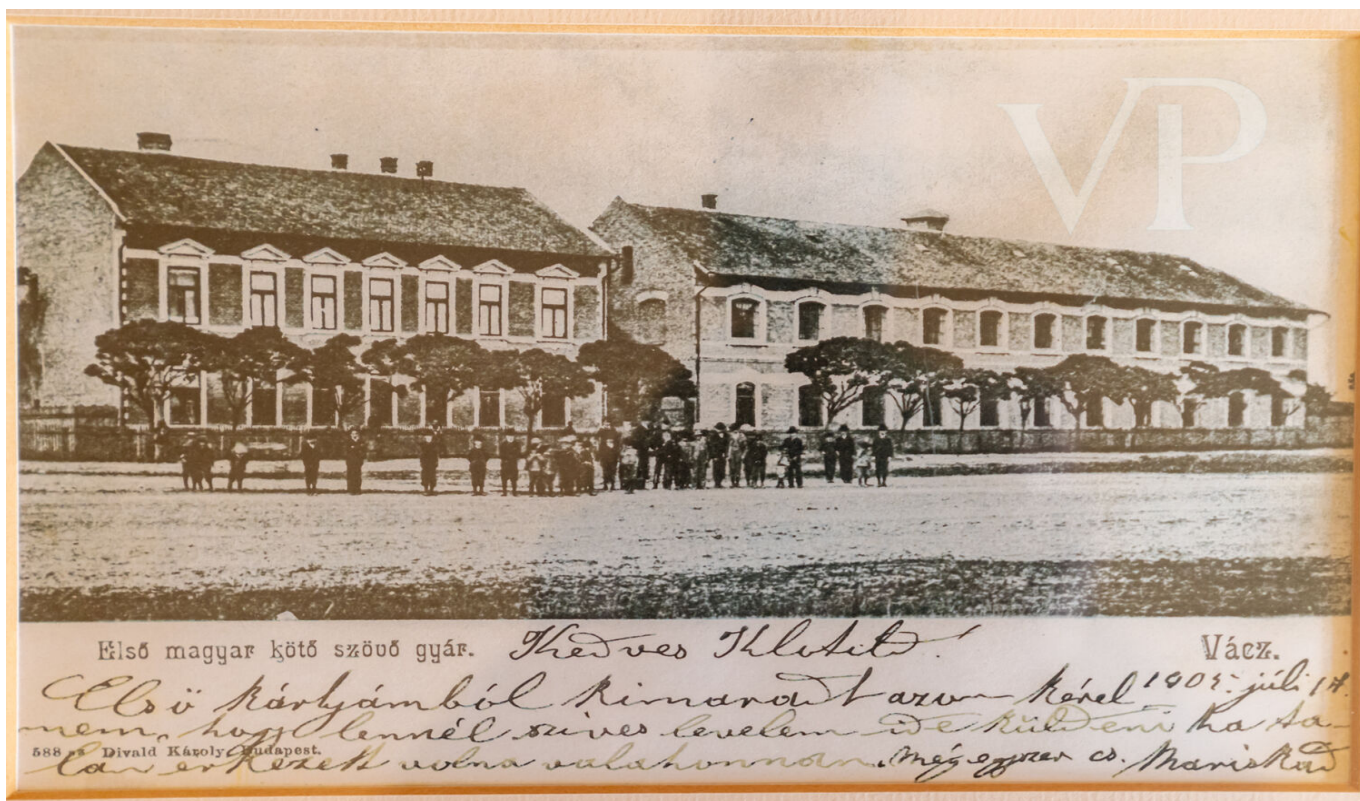 VP
Első magyar kötő szövő gyár. Kedves Klotild! Vácz.
Első kártyámból kimaradt azon kérel 1905. júli 17.
mem, hogy lennél szives levelem ide küldeni ha ta-
588 Divald Károly Budapest.
lán érkezett volna valahonnan. Még egyszer cs. Mariskád